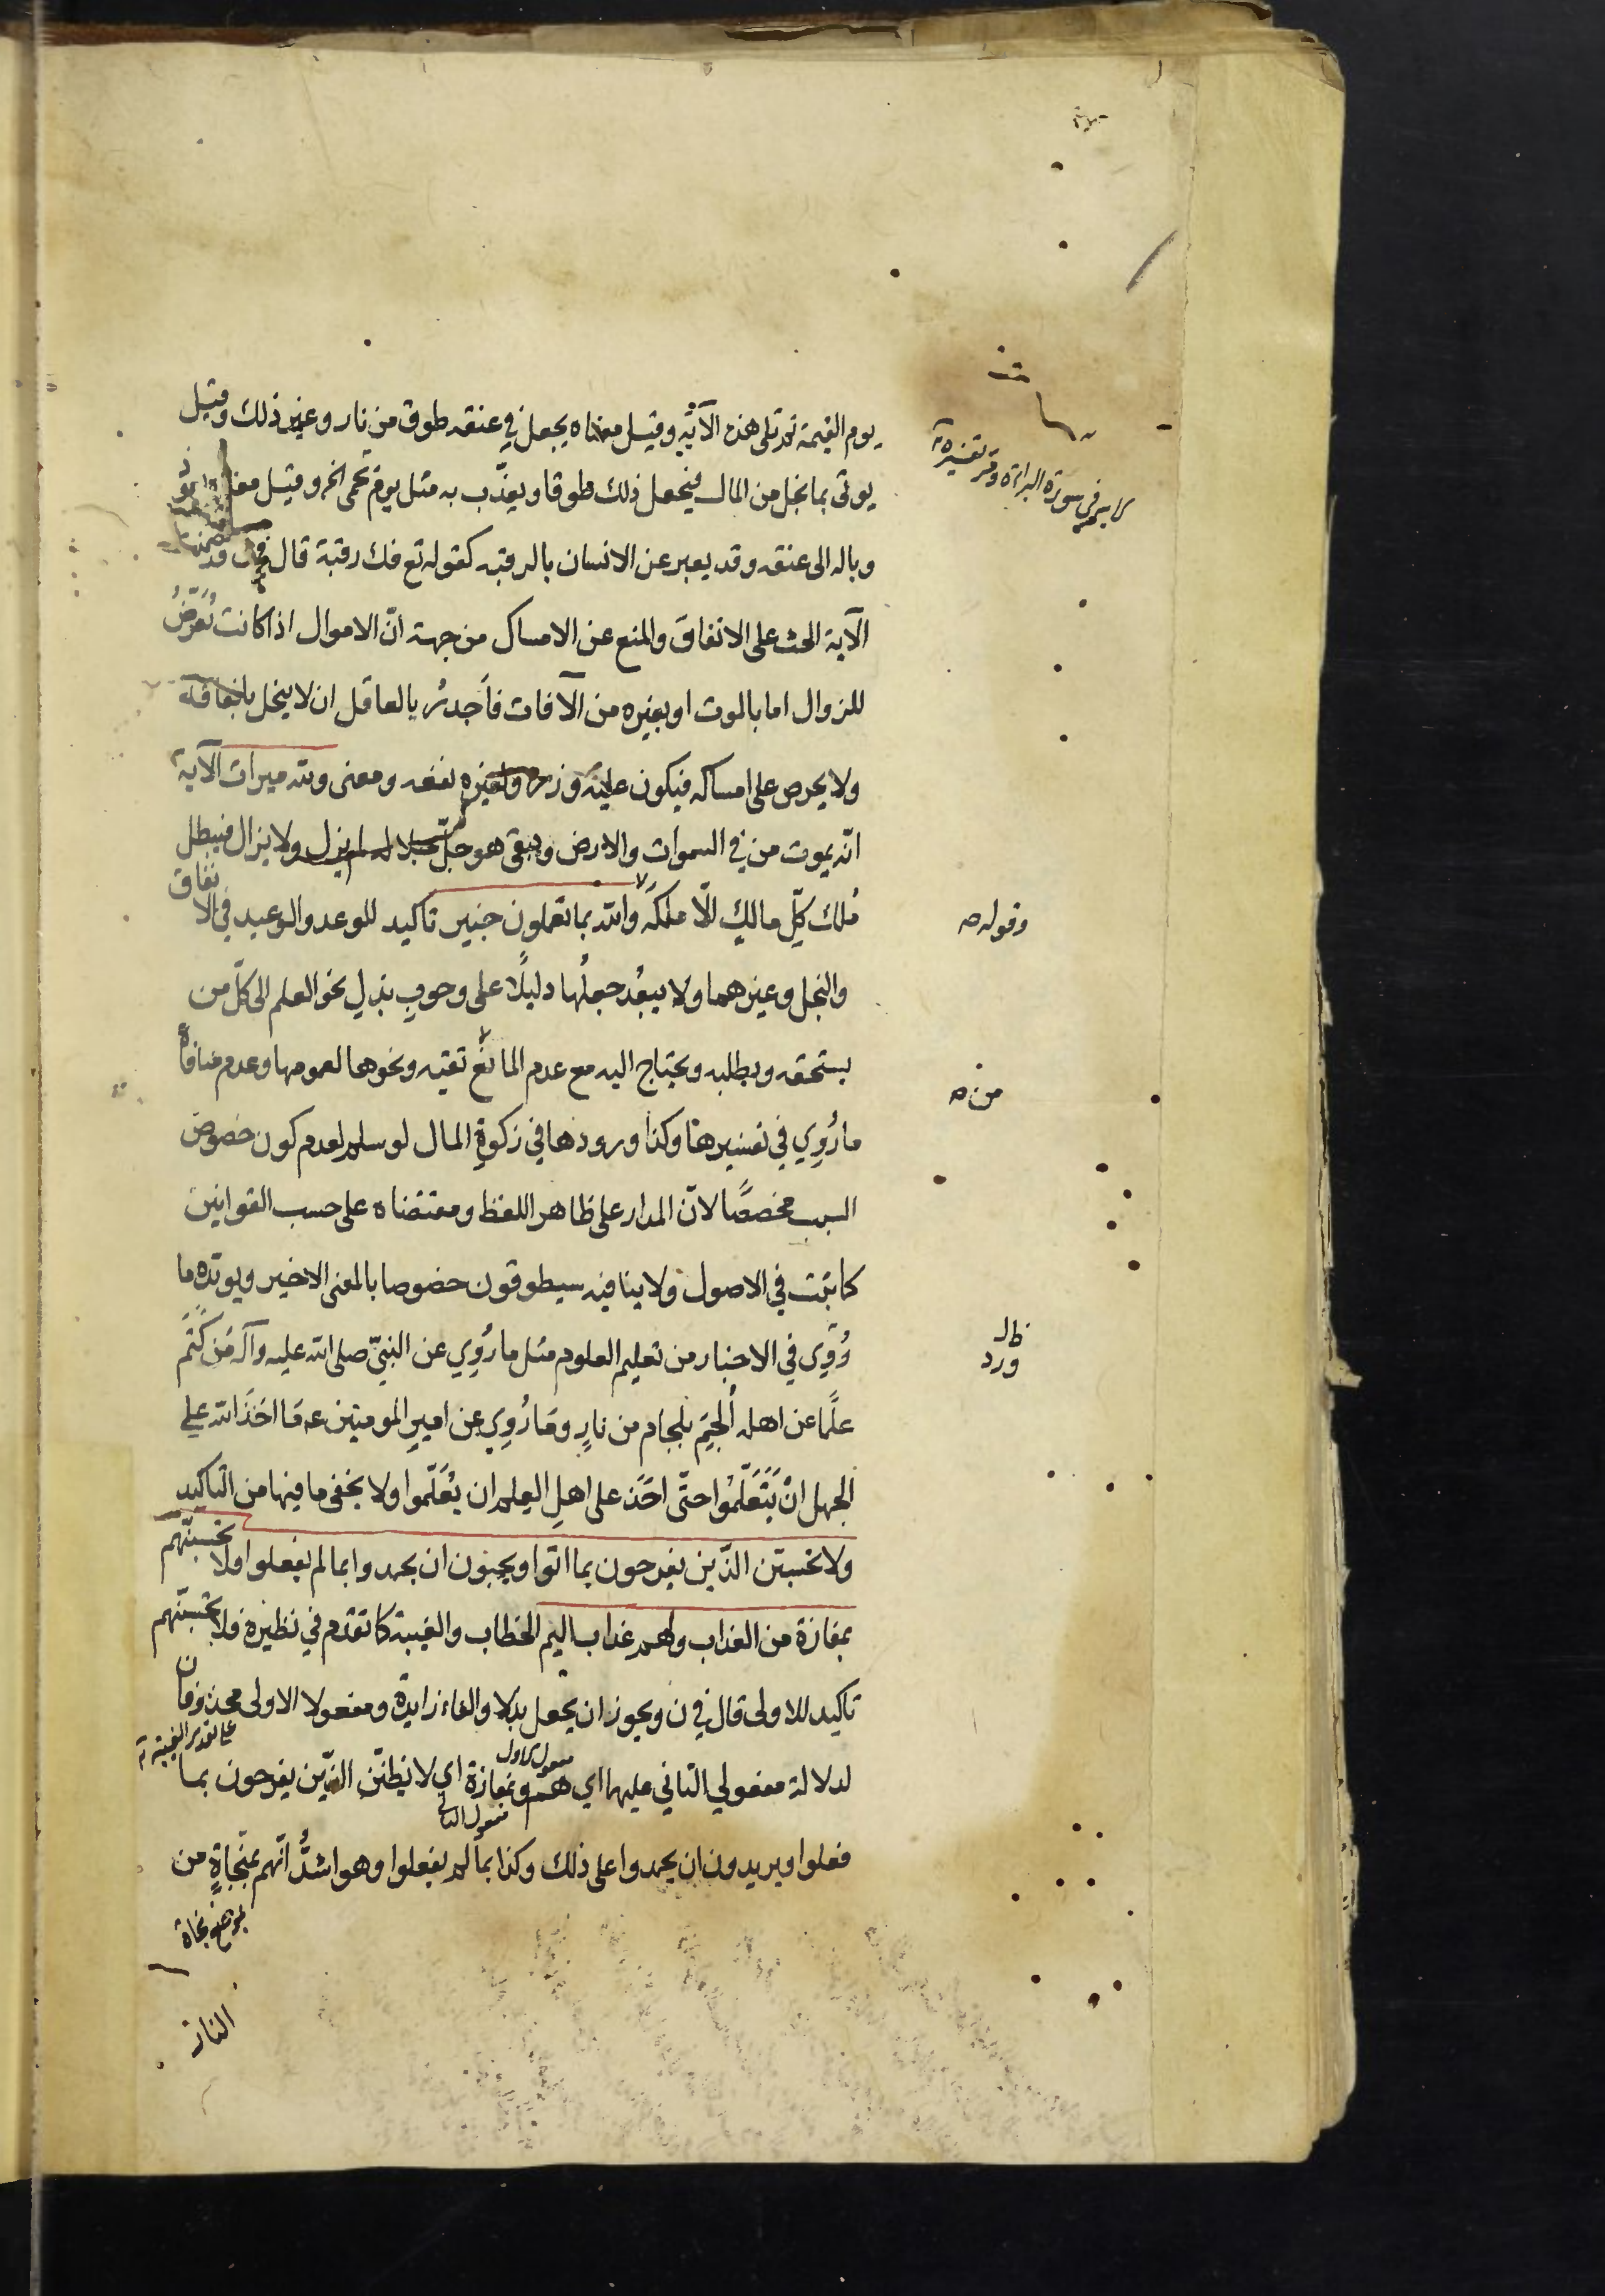 يوم القيمة ثم تلى هذه الآية وقيل معناه يجعل في عنقه طوق من نار وغير ذلك وقيل
يوتى بما بخل من المال فيجعل ذلك طوقا ويعذّب به مثل يوم يحمى الخ وقيل معناه يعود
وباله الى عنقه وقد يعبر عن الانسان بالرقبه كقوله تع فك رقبة قال في ف وقد تضمنت
الآية الحث على الانفاق والمنع عن الامساك من جهة انّ الاموال اذا كانت تُعرَّضُ
للزوال اما بالموت او بغيره من الآفات فأجدرُ بالعاقل ان لا يبخل بانفاقه
ولا يحرص على امساكه فيكون عليه وزره ولغيره نفعه ومعنى ولله ميراث الآية
انّه يموت من في السموات والارض ويبقى هو جلّ جلاله لم يزل ولا يزال فيبطل
مُلك كلّ مالكٍ الّا ملكَه والله بما تعملون خبير تاكيد للوعد والوعيد في الانفاق
والبخل وغيرهما ولا يبعُد جعلُها دليلًا على وجوب بذلِ نحو العلم الى كلّ من
يستحقه ويطلبه ويحتاج اليه مع عدم المانع تقيه ونحوها لعمومها وعدم منافاة
ما رُوِي في تفسيرها وكذا ورودها في زكوةِ المال لو سلم لعدم كون خصوص
السبب مخصصًا لانّ المدار على ظاهر اللفظ ومقتضاه على حسب القوانين
كما ثبت في الاصول ولا ينافيه سيطوقون خصوصا بالمعنى الاخير ويويّده ما
رُوِي في الاخبار من تعليم العلوم مثل ما رُوِي عن النبيّ صلى الله عليه وآله مَن كَتَمَ
علمًا عن اهله أُلجِمَ بلجام من نارٍ وما رُوِي عن اميرِ المومنين عه مَا اخَذَ الله على
الجهل انْ يَتَعَلّمُوا حتّى اخَذ على اهلِ العِلم ان يُعَلّموا ولا يخفى ما فيها من التاكيد
ولا تحسبنّ الذّين يفرحون بما اتوا ويحبّون ان يحمدوا بما لم يفعلوا ولا تحسبنّهم
بمفازة من العذاب ولهم عذاب اليم الخطاب والغيبة كما تقدم في نظيره فلا تحسبنّهم
تاكيد للاولى قال في ن ويجوز ان يجعل بدلا والفاء زايدة ومفعولا الاولى محذوفان
لدلالة مفعولي الثاني عليهما اي هم وبمفازة اي لا يظننّ الذّين يفرحون بما
على تقدير الغيبة
مفعول الاول
مفعول الثاني
فعلوا ويريدون ان يحمدوا على ذلك وكذا بما لم يفعلوا وهو اشدُّ انّهم بمَنجاةٍ من
بموضع نجاة
النار
في سورة البراءة وتفسيره
وقوله ص
من ص
ظاهر
ورد